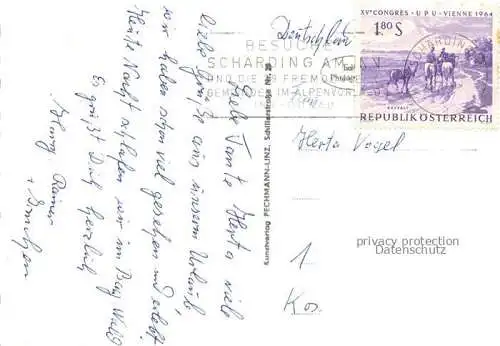 Deutschland
XV CONGRES - UPU - VIENNE 1964
1.80 S
REPUBLIK ÖSTERREICH
BESUCHE
SCHÄRDING AM INN
UND DIE 29 FREMD
GEMEINDEN IM ALPENVORLAND
Kunstverlag PECHMANN-LINZ, Schillerstraße Nr. 29
Liebe Tante Herta viele
liebe Grüße aus unserem Urlaub
wir haben schon viel gesehen und erlebt
Heute Nacht schlafen wir im Bay Wald
Es grüßt Dich herzlich
Rainer
Herta Vogel
1
privacy protection
Datenschutz